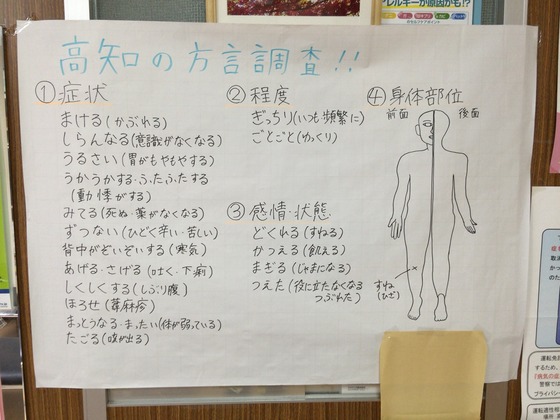 レルギーが原因かも!?
高知の方言調査!!
①症状
まける(かぶれる)
しらんなる(意識がなくなる)
うるさい(胃がもやもやする)
うかうかする・ふたふたする
(動悸がする)
みてる(死ぬ・薬がなくなる)
ずつない(ひどく辛い・苦しい)
背中がぞいぞいする(寒気)
あげる・さげる(吐く・下痢)
しくしくする(しぶり腹)
ほろせ(蕁麻疹)
まっとうなる・まったい(体が弱っている)
たごる(咳が出る)
②程度
ぎっちり(いつも頻繁に)
ごとごと(ゆっくり)
③感情・状態
どくれる(すねる)
かつえる(飢える)
まぎる(じゃまになる)
つえた(役に立たなくなる
つぶれた)
④身体部位
前面
後面
すね
(ひざ)
運転免
するため、
「病気の症
警察では
プライバシー